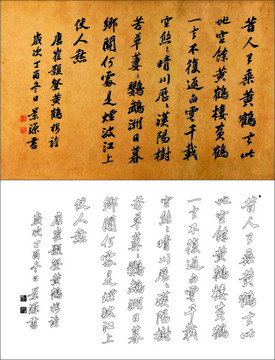 昔人已乘黃鶴去此
地空餘黃鶴樓黃鶴
一去不復返白雲千載
空悠々晴川歷々漢陽樹
芳草萋々鸚鵡洲日暮
鄉關何處是煙波江上
使人愁
唐崔顥登黃鶴樓詩
歲次丁酉冬日景源書
昔人已乘黃鶴去此
地空餘黃鶴樓黃鶴
一去不復返白雲千載
空悠々晴川歷々漢陽樹
芳草萋々鸚鵡洲日暮
鄉關何處是煙波江上
使人愁
唐崔顥登黃鶴樓詩
歲次丁酉冬日景源書